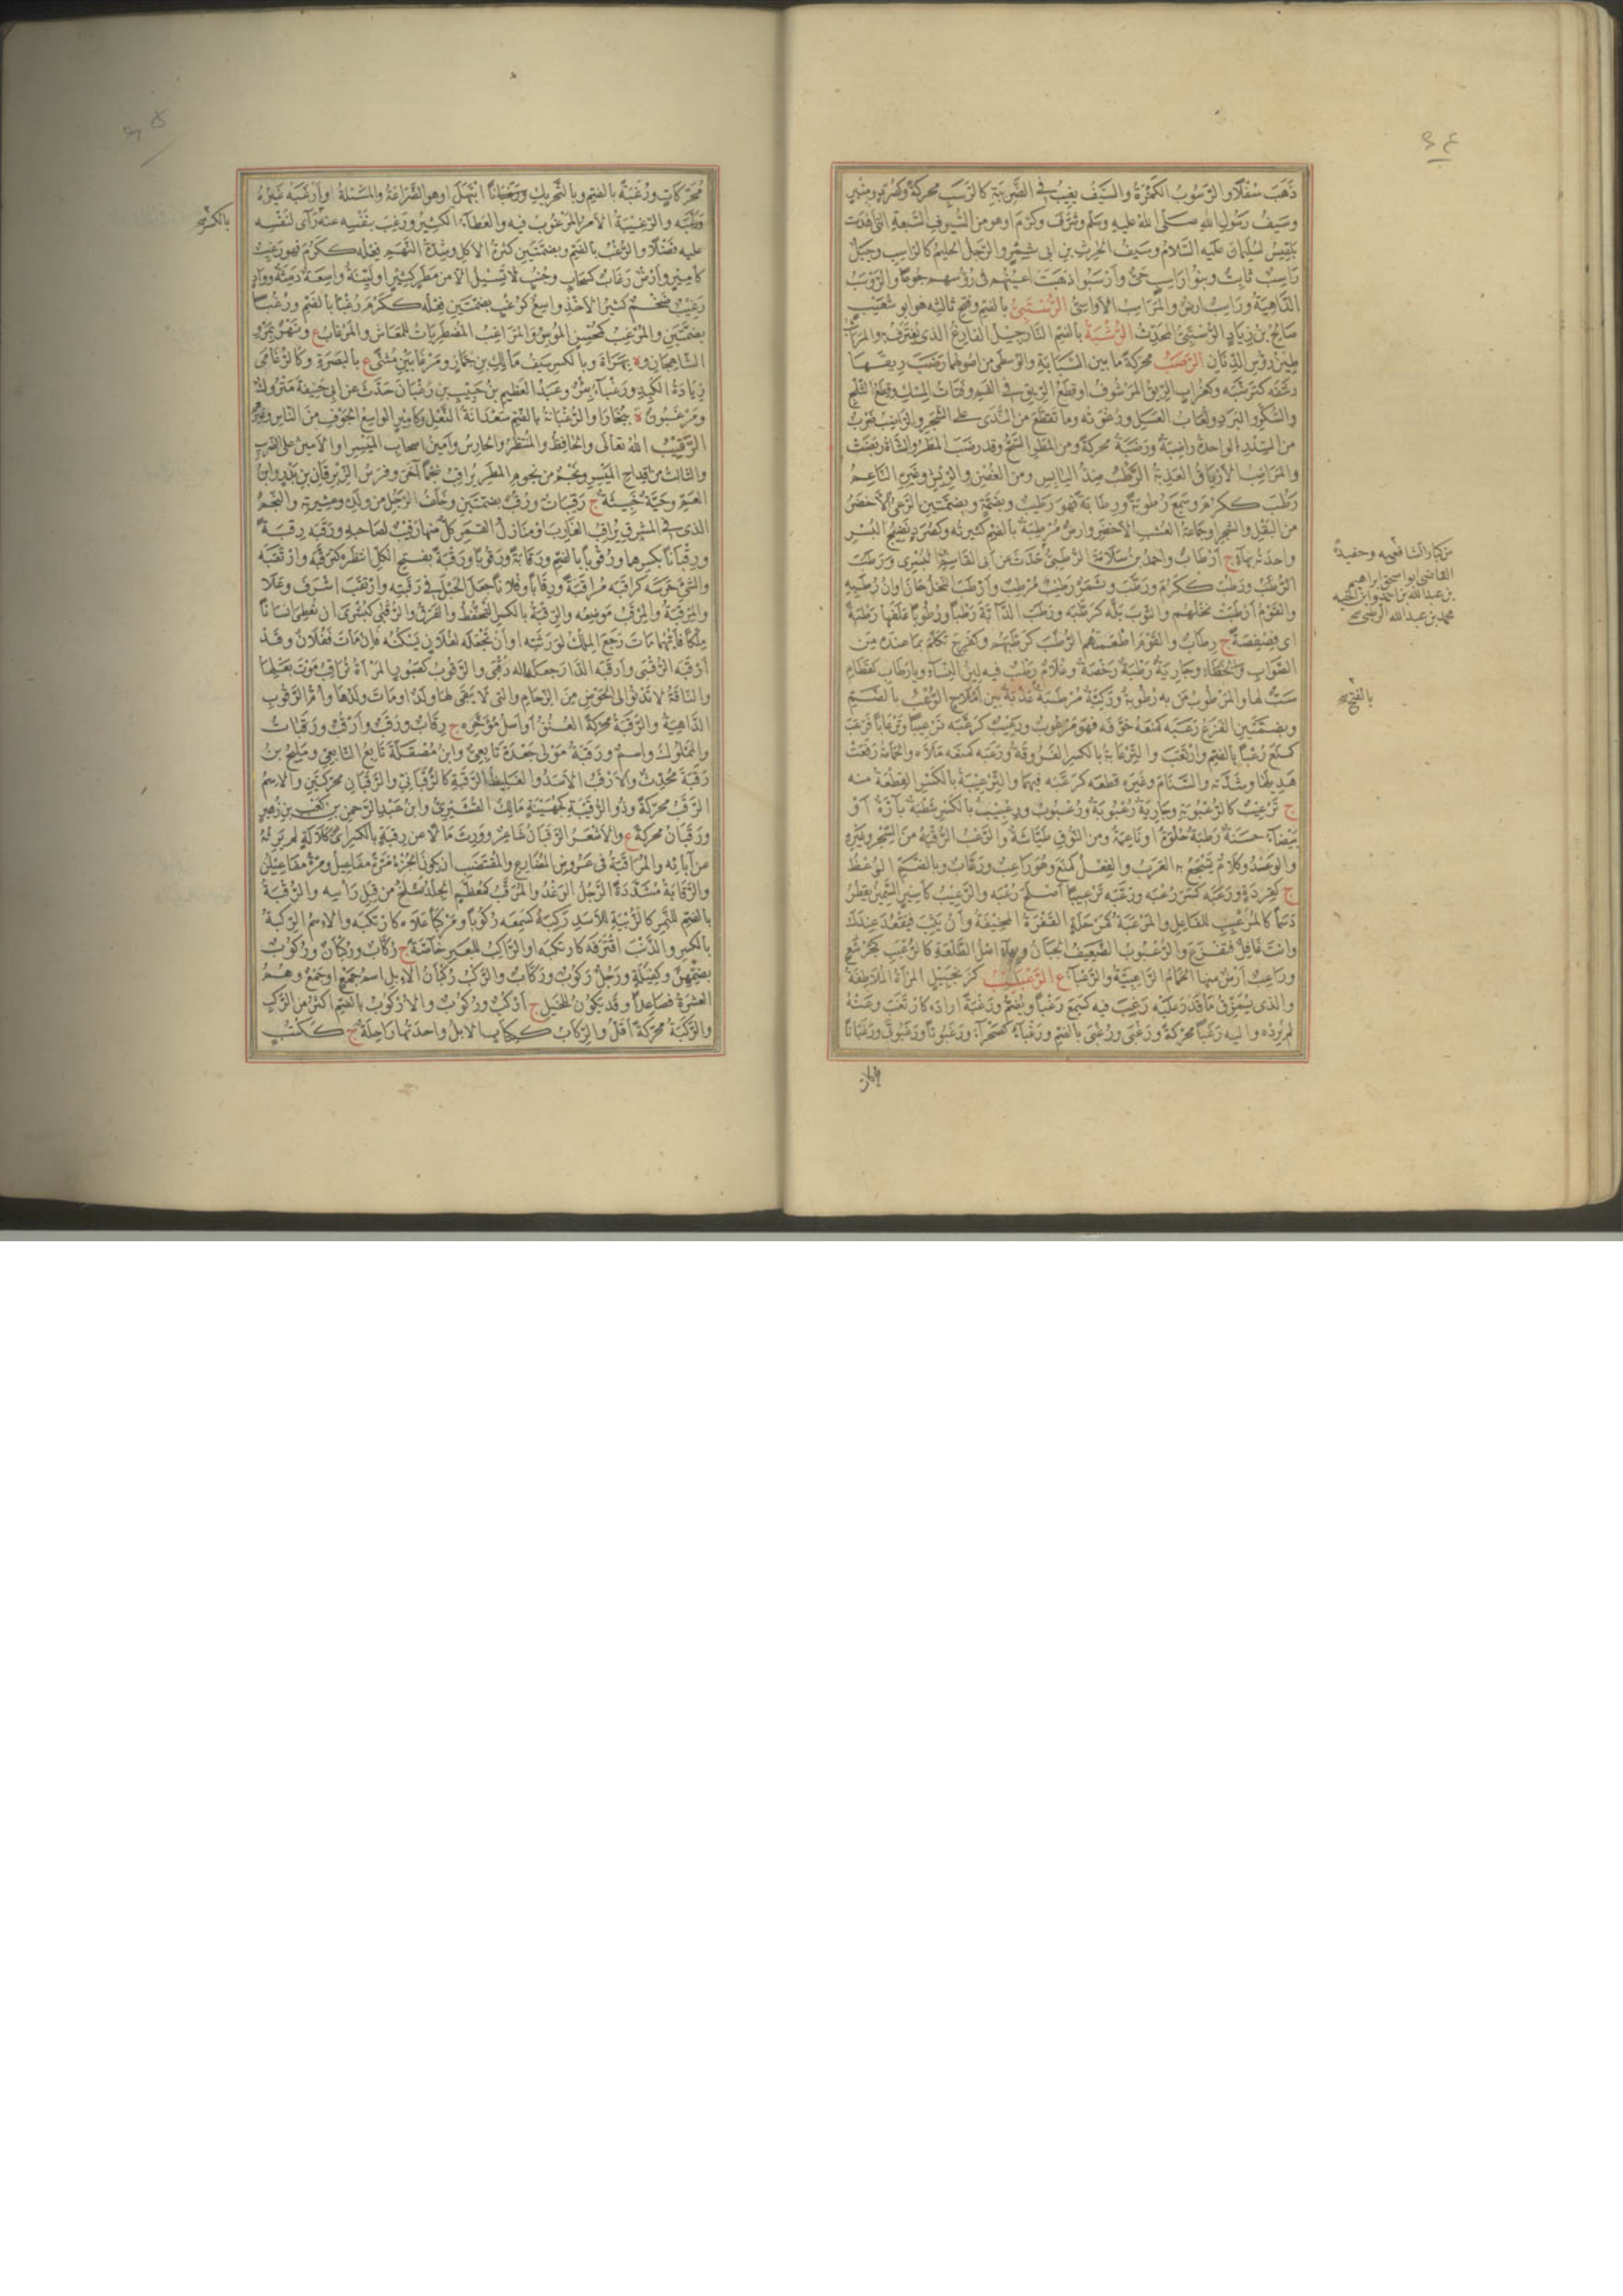 ذَهَبَ سُفْلًا والرَّسُوبُ الكَمَرَةُ والسَّيْفُ يغِيبُ في الضَّرِيبَةِ كالرَّسَبِ محركةً وكصُرَدٍ ومِنْبَرٍ
وسَيْفُ رَسُولِ اللهِ صلى اللهُ عليهِ وسَلم وشرَّفَ وكرّمَ اوهو من السُّيُوفِ السَّبعةِ التي أهْدَتْ
بَلْقِيسُ لسُلَيْمانَ عليه السَّلامُ وسَيفُ الحرِثِ بنِ ابى شمرٍ والرَّجلُ الحليمُ كالرّاسِبِ وجَبَلٌ
رَاسِبٌ ثابتٌ وبنُو رَاسِبٍ حَىٌّ وأَرْسَبُوا ذهبَتْ اعينُهم فى رُؤسهم جوعًا والرَّوْسَبُ
الدَّاهِيَةُ ورَاسِبٌ ارضٌ والمَرَاسِبُ الأواسِىُّ الرُّسْتَبِىُّ بالضم وفتح ثالثه هو ابو شعَيْبٍ
صَالِحُ بْنُ زِيَادٍ الرُّسْتَبِىُّ المحَدِّثُ الرُّشْبَةُ بالضم النَّارَجِيلُ الفارغُ الذى يُغْتَرَفُ به والمَرَاشِبُ
طِينُ رؤسِ الدِّنَانِ الرَّصَبُ محركةً مابين السَّبَّابَةِ والوُسطَى من اصولهما رَضَبَ رِيقَها
رشَفَه كتَرَضَّبَه وكغُرابٍ الرِّيقُ المَرْشوفُ او قِطَعُ الرِّيقِ فى الفمِ وفُتاتُ المسْكِ وقِطَعُ الثلْجِ
والسُّكَّرِ والبَرَدُ ولُعَابُ العَسَلِ ورُغوَتُه وما تقطَّعَ من النَّدَى على الشجَرِ والراضِبُ ضَرْبٌ
من السِّدْرِ الواحدةُ راضِبَةٌ ورَضَبَةٌ محركةً ومن المطَرِ السَّحُّ وقد رضَبَ المطرُ والشاةُ ربَضَتْ
والمَرَاضِبُ الأَرْيَاقُ العَذْبةُ الرَّطْبُ ضِدُّ اليابِسِ ومن الغُصْنِ والرِّيشِ وغيرِه النَّاعِمُ
رَطُبَ ككَرُمَ وسَمِعَ رُطُوبَةً ورَطَابَةً فهو رَطِيبٌ وبضمةٍ وبضمتين الرِّعْىُ الأخضَرُ
من البَقْلِ والشجرِ او جماعةُ العُشْبِ الأخضرِ وارضٌ مُرْطِبَةٌ بالضم كثيرتُه وكصُرَدٍ نَضِيجُ البُسْرِ
واحدتُه بهاءٍ ج أرْطَابٌ واحمدُ بن سَلامَةَ الرُّطَبِىُّ حَدَّثَ عن أبى القاسم بن البُسْرِى ورَطَبَ
الرُّطَبُ ورطُبَ ككَرُمَ ورَطَّبَ وتَمْرٌ رَطِيبٌ مُرْطِبٌ وأَرْطَبَ النَّخْلُ حَانَ أَوَانُ رُطَبِهِ
والقَوْمُ أَرْطَبَ نَخْلُهم والثوبَ بلَّه كرَطَّبَه ورَطَبَ الدَّابَّةَ رَطْبًا ورُطُوبًا عَلَفَها رَطْبَةً
اى فِصْفِصَةً ج رِطَابٌ والقومَ اطْعَمَهم الرُّطَبَ كرَطَّبَهم وكفَرِحَ تكلَّمَ بما عندَه من
الصَّوابِ والخطاءِ وجَاريَةٌ رَطْبَةٌ رَخْصَةٌ وغُلَامٌ رَطْبٌ فيه لِينُ النِّسَاءِ ويا رَطَابِ كقَطَامِ
سَبٌّ لها والمَرْطوبُ مَن به رُطوبةٌ ورَكِيَّةٌ مَرْطَبَةٌ عَذْبَةٌ بين أمْلَاحٍ الرُّعْبُ بالضم
وبضمتين الفزَعُ رَعَبَه كمَنَعَه خوَّفَه فهو مَرْعُوبٌ ورَعِيبٌ كرَعَّبَه تَرْعِيبًا وتَرْعَابًا فرَعَبَ
كمَنَعَ رُعْبًا بالضم وارْتَعَبَ والتِّرْعَابَةُ بالكسر الفَرُوقَةُ ورَعَبَه كمنَعَه مَلَأَه والحَمَامَةُ رَفَعَتْ
هَدِيلَها وشدَّتْه والسَّنَامَ وغيرَه قطعَه كرَعَّبَه فيهما والتِّرْعِيبَةُ بالكسر القِطْعَةُ منه
ج تَرْعِيبٌ كالرُّعْبُوبَةِ وجاريَةٌ رُعْبُوبَةٌ ورُعْبُوبٌ ورِعْبِيبٌ بالكسر شَطْبَةٌ تارَّةٌ أوْ
بَيْضَاءُ حَسَنَةٌ رَطْبَةٌ حُلْوَةٌ او ناعِمَةٌ ومن النُّوقِ طَيَّاشَةٌ والرَّعْبُ الرُّقْيَةُ من السِّحْرِ وغيرِه
والوعيدُ وكلامٌ يَسْجَعُ به العَرَبُ والفِعْلُ كمَنَعَ وهو رَاعِبٌ ورَعَّابٌ وبالضم الرُّعْظُ
ج كقِرَدَةٍ ورَعَبَه كَسَرَ رُعْبَه ورَعَّبَه تَرْعِيبًا أصْلَحَ رُعْبَه والرَّعِيبُ كأميرٍ السَّمِينُ يَقْطُرُ
دَسَمًا كالمُرَعْبَبِ للفاعِلِ والمَرْعَبَةُ كمَرْحَلَةٍ القَفْرَةُ المُخِيفَةُ وأن يَثِبَ فيَقْعُدَ عندكَ
وانتَ غافِلٌ فتفزَعَ والرُّعْبُوبُ الضَّعِيفُ الجَبَانُ وبهاءٍ اصْلُ الطَّلْعَةِ كالرُّعْبَبِ كجُرْشُعٍ
ورَاعِبٌ أرضٌ منها الحمَامُ الرَّاعِبِيَّةُ والرَّعْبَاءُ ع الرَّعْبَلِيبُ كزَنْجَبِيلٍ المرأةُ المُلَاطِفَةُ
والذى يُمَزِّقُ ماقَدَرَ عَلَيه رَغِبَ فيه كسَمِعَ رَغْبًا ويُضَمُّ ورَغْبَةً ارادَه كارْتَغَبَ وعَنْهُ
لم يُرِدْه واليه رَغَبًا محركةً ورَغْبَى ورُغْبَى بالضم ورَغْبَاءَ كصَحْراءَ ورَغَبُوتًا ورَغَبُوتَى ورَغَبَانًا
من كبار الشافعيه وحفيده
القاضى ابو اسحق ابراهيم
بن عبدالله بن احمد وابن اخيه
محمد بن عبدالله الرطبى صح
بالفتح صح
محركاتٍ ورُغْبَةً بالضم وبالتحريكِ ورَغَبَانًا ابْتَهَلَ او هو الضَّراعَةُ والمَسْئلةُ وأرْغَبَه غَيْرُهُ
ورَغَّبَه والرَّغِيبَةُ الأمْرُ المَرْغوبُ فيه والعطاءُ الكثيرُ ورَغِبَ بنَفْسِه عنه رَآى لنفسه
عليه فضْلًا والرُّغْبُ بالضم وبضمتين كثرةُ الأكْلِ وشدَّةُ النَّهَمِ فِعْلُه ككَرُمَ فهو رَغِيبٌ
كأميرٍ وأرْضٌ رَغَابٌ كسَحابٍ وجُنُبٍ لاتَسِيلُ الا من مَطَرٍ كثيرٍ او ليِّنَةٌ واسِعَةٌ دَمِثَةٌ ووَادٍ
رَغِيبٌ ضَخْمٌ كثيرُ الأخْذِ واسِعٌ كرُغُبٍ بضمتين فِعْلُه ككَرُمَ رُغْبًا بالضم ورُغُبًا
بضمَّتين والمُرْغِبُ كمُحْسِنٍ المُوسِرُ والمَرَاغِبُ المُضْطَرِبَاتُ للمَعَاشِ والمَرْغَابُ ع ونَهْرٌ بمَرْوِ
الشاهِجانِ و ة بهَرَاةَ وبالكسر سَيفُ مَالِكِ بن حَمَّازٍ ومَرْغَابَيْنُ مُثَنًّى ع بالبَصْرَةِ وكالرُّغَامَى
زِيَادَةُ الكَبِدِ ورَغْبَاءُ بِئرٌ وعبدُ العظيمِ بنُ حَبيبِ بن رَغْبَانَ حَدَّثَ عن ابى حَنِيفَةَ مَتْروكٌ
ومَرْغَبُونُ ة ببُخَارَا والرُّغْبَانَةُ بالضم سَعْدَانَةُ النَّعْلِ وكأمِيرٍ الواسِعُ الجَوْفِ من النَّاسِ وغيرِهم
الرَّقِيبُ اللهُ تعَالَى والحافِظُ والمُنْتَظِرُ والحارِسُ وأمينُ اصحابِ المَيْسِرِ او الأمينُ على الضرِيبِ
والثالثُ من قِداحِ المَيْسِرِ ونجْمٌ من نجومِ المطَرِ يُرَاقِبُ نجْمًا آخَرَ وفرَسُ الزِّبْرِقانِ بن بَدْرٍ وابنُ
العَمِّ وحَيَّةٌ خَبِيثَةٌ ج رَقِيبَاتٌ ورُقُبٌ بضمتين وخَلَفُ الرَّجُلِ من وَلَدِه وعشيرتِه والنَّجْمُ
الذى فى المشرِقِ يُرَاقِبُ الغارِبَ او مَنازِلُ القَمَرِ كلٌّ منها رَقيبٌ لصاحِبِه ورَقَبَه رِقْبَةً
ورِقْبَانًا بكسرِهما ورُقُوبًا بالضم ورَقَابَةً ورَقُوبًا ورَقْبَةً بفتحِ الكلِّ انْتظَرَه كتَرَقَّبَه وارْتَقَبَه
والشئَ حَرَسَه كرَاقَبَه مُرَاقَبَةً ورِقَابًا وفلانًا جَعَلَ الحَبْلَ فى رَقَبَتِه وارْتَقَبَ اشْرَفَ وعَلَا
والمَرْقَبَةُ والمَرْقَبُ مَوْضِعُه والرِّقْبَةُ بالكسرِ التَّحَفُّظُ والفرَقُ والرُّقْبَى كبُشْرَى ان تُعْطِىَ انسانًا
مِلْكًا فأيُّهُما مَاتَ رَجَعَ المِلْكُ لوَرَثَتِه او ان تَجْعَلَه لفُلانٍ يَسْكُنُه فإن مَاتَ ففُلانٌ وقَدْ
أرْقَبَه الرُّقْبَى وأرْقَبَه الدَّارَ جعلَها له رُقْبَى والرَّقُوبُ كصَبُورٍ المَرْأةُ تُرَاقِبُ مَوْتَ بَعْلِها
والنَّاقَةُ لاتَدْنُو الى الحَوْضِ من الزِّحَامِ والتى لا يَبْقَى لها ولَدٌ او مَاتَ ولَدُها وأُمُّ الرَّقُوبِ
الدَّاهِيَةُ والرَّقَبَةُ محركةً العُنُقُ او اصلُ مُؤَخَّرِه ج رِقَابٌ ورَقَبٌ وأرْقُبٌ ورَقَبَاتٌ
والمَمْلُوكُ واسمٌ ورَقَبَةُ مَوْلَى جَعْدَةَ تابِعِىٌّ وابنُ مَصْقَلَةَ تابِعُ التابِعِىِّ ومَلِيحُ بنُ
رَقَبَةَ مُحَدِّثٌ والأرْقَبُ الأسَدُ والغَلِيظُ الرَّقَبَةِ كالرَّقَبَانِىِّ والرَّقَبَانِ محركتين والاسْمُ
الرَّقَبُ محركةً وذو الرُّقَيْبَةِ كجُهَيْنَةَ مَالِكٌ القُشَيْرِىُّ وابنُ عَبْدِ الرَّحمنِ بن كَعْبِ بن زُهَيرٍ
ورَقَبَانُ محركةً ع والأشْعَرُ الرَّقَبَانُ شَاعِرٌ وورِثَ مَالًا عن رِقْبَةٍ بالكسر اى كَلَالَةٍ لم يَرِثْهُ
عن آبائِه والمُرَاقَبَةُ فى عَرُوضِ المُضَارِعِ والمُقْتَضَبِ ان يكونَ الجُزْءُ مَرَّةً مفَاعِيلُ ومَرَّةً مفَاعِيلُنْ
والرَّقَّابَةُ مُشَدَّدَةً الرَّجُلُ الوَغْدُ والمُرَقَّبُ كمُعَظَّمٍ الجِلْدُ يُسْلَخُ من قِبَلِ رَأْسِه والرُّقْبَةُ
بالضم للنَّمِرِ كالزُّبْيَةِ للأسَدِ رَكِبَهُ كسَمِعَه رُكُوبًا ومَرْكَبًا عَلَاه كارْتَكَبَه والاسْمُ الرِّكْبَةُ
بالكسر والذَّنْبَ اقْتَرَفَه كارْتَكَبَه او الرَّاكِبُ للبعيرِ خاصَّةً ج رُكَّابٌ ورُكْبَانٌ ورُكُوبٌ
بضمِّهِنَّ وكفِيَلَةٍ ورَجُلٌ رَكُوبٌ ورَكَّابٌ والرَّكْبُ رُكْبَانُ الإبلِ اسمُ جَمْعٍ او جَمْعٌ وهُمُ
العشرةُ فصاعِدًا وقد يكونُ للخيلِ ج أرْكُبٌ ورُكُوبٌ والأُرْكُوبُ بالضم اكثرُ من الرَّكْبِ
والرَّكَبَةُ محركةً أقَلُّ والرِّكابُ ككِتابٍ الإبلُ واحدَتُها رَاحِلَةٌ ج ككُتُبٍ
بالكسر صح